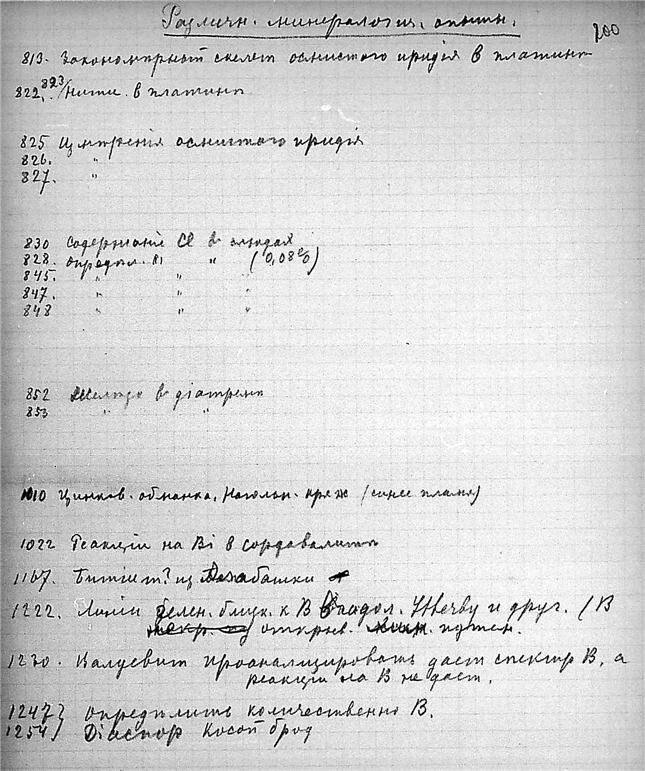 Различн. минералогич. опыты.
200
813. Закономѣрный скелет осмистого иридія в платинѣ
822, 823/ Нити в платинѣ
825 Измѣренія осмистого иридія
826. "
827. "
830 Содержаніе Cl в слюдах
828. опредѣл. " (0,08%)
845. " "
847. " " "
848 " " "
852 Желѣзо в діатренѣ
853 " "
1010 Цинков. обманка, Наголн. кряж (синее пламя)
1022 Реакціи на Bi в сордавалитѣ
1167. из башки
1222. Линіи зелен. близк. к B и друг. (В
открыв. путем.
1230. Калусвит проанализировать даст спектр B, а
реакціи на B не даст.
1247} опредѣлить количественно B.
1254) Діаспор Косой брод